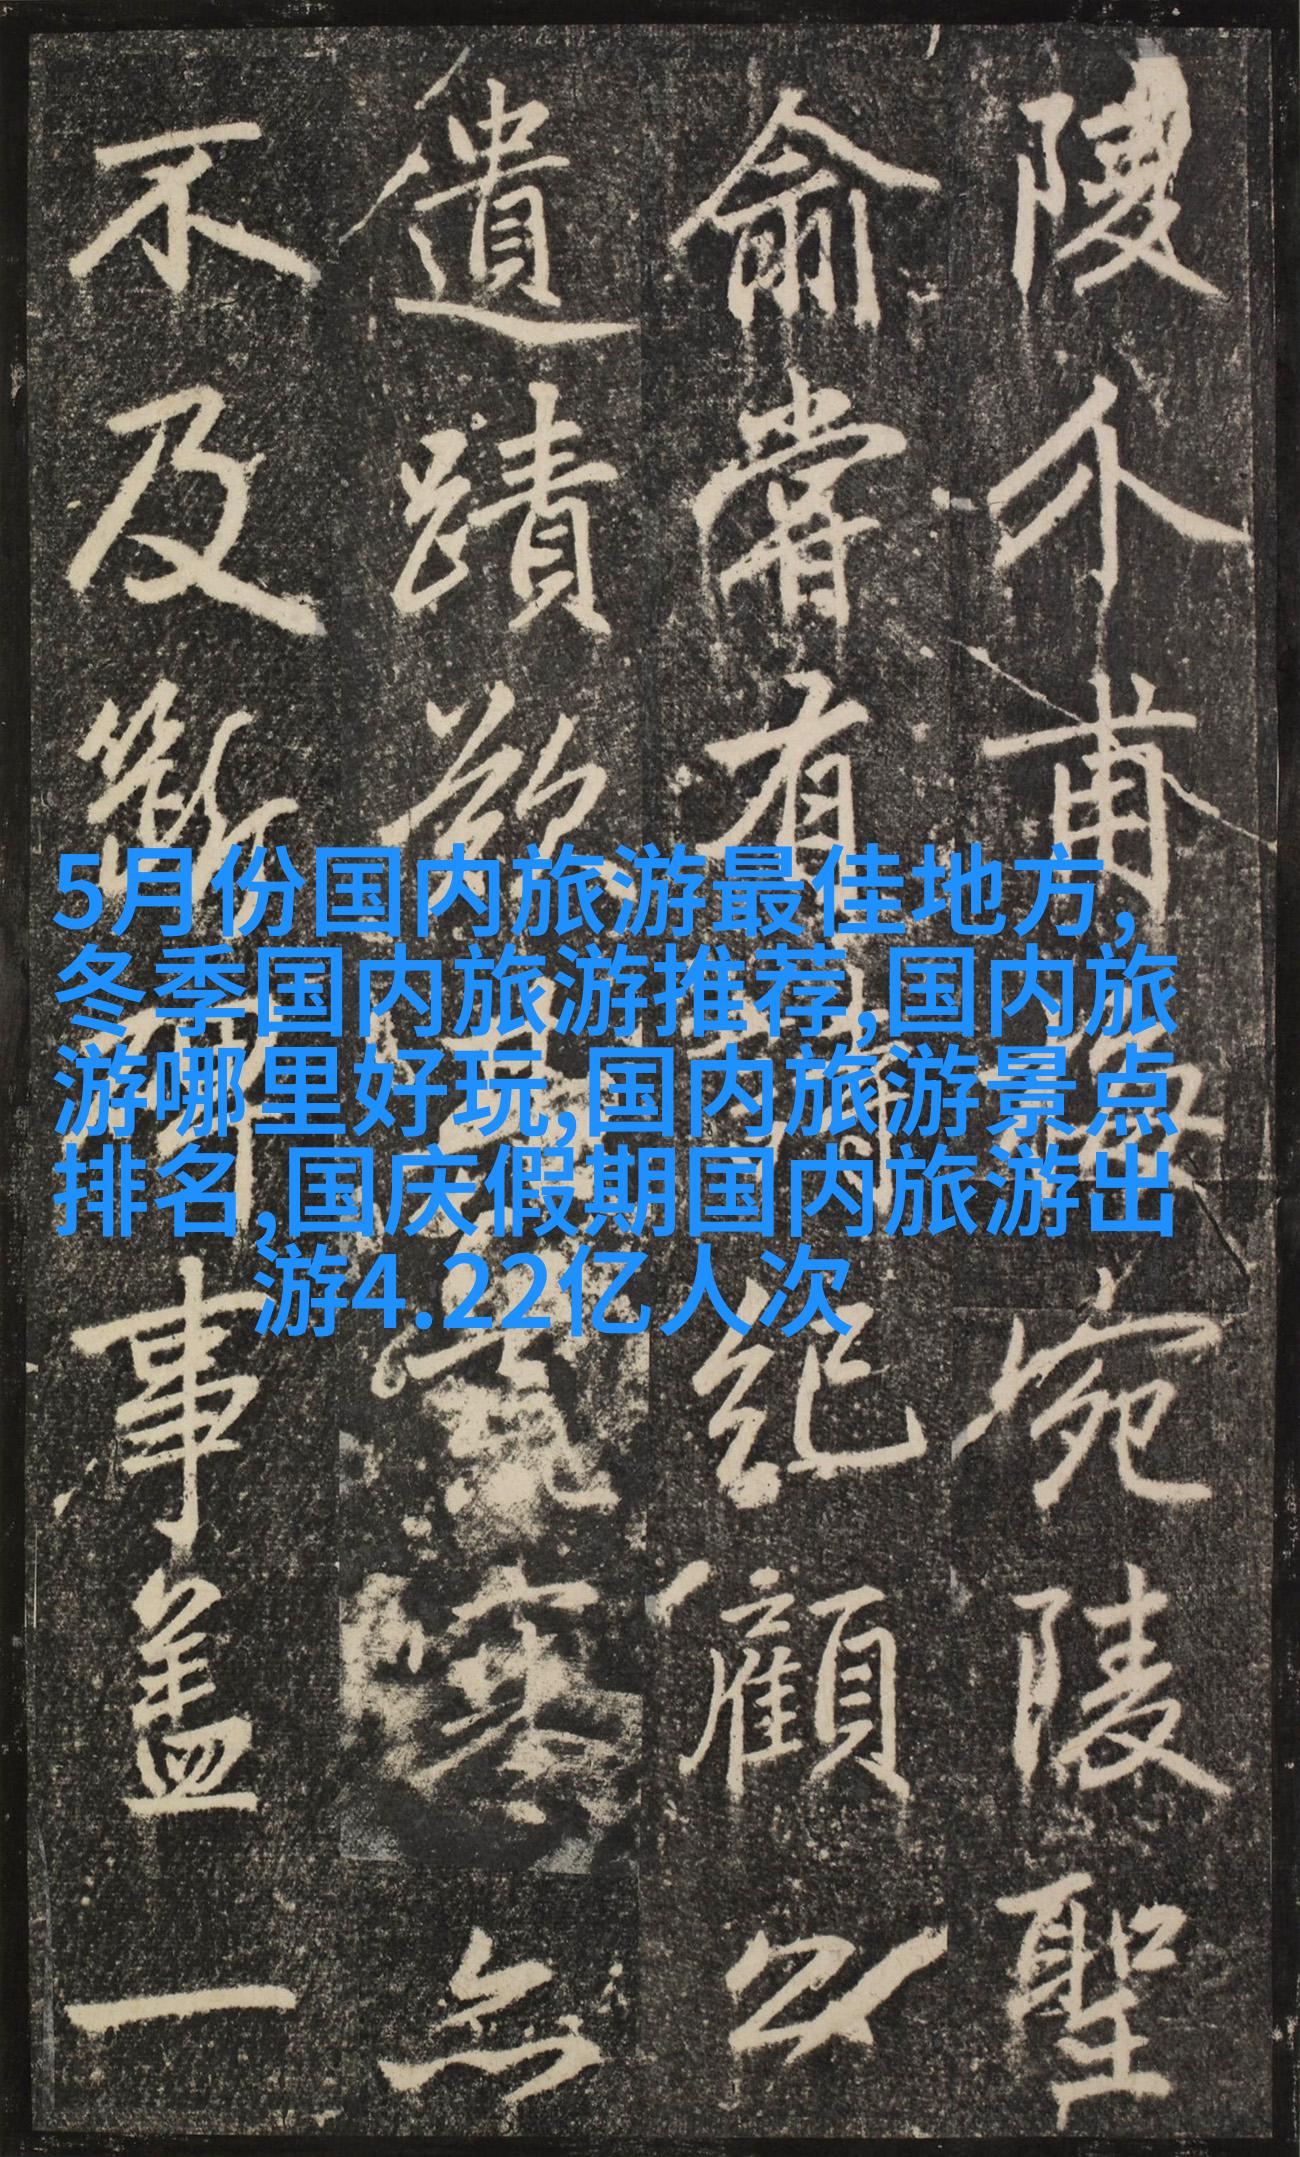 陵介甫□□宛陵聖
俞當有□□紀顧以
遺蹟□□□□寒亦
不及□□事蓋一
5月份国内旅游最佳地方,
冬季国内旅游推荐,国内旅
游哪里好玩,国内旅游景点
排名,国庆假期国内旅游出
游4.22亿人次